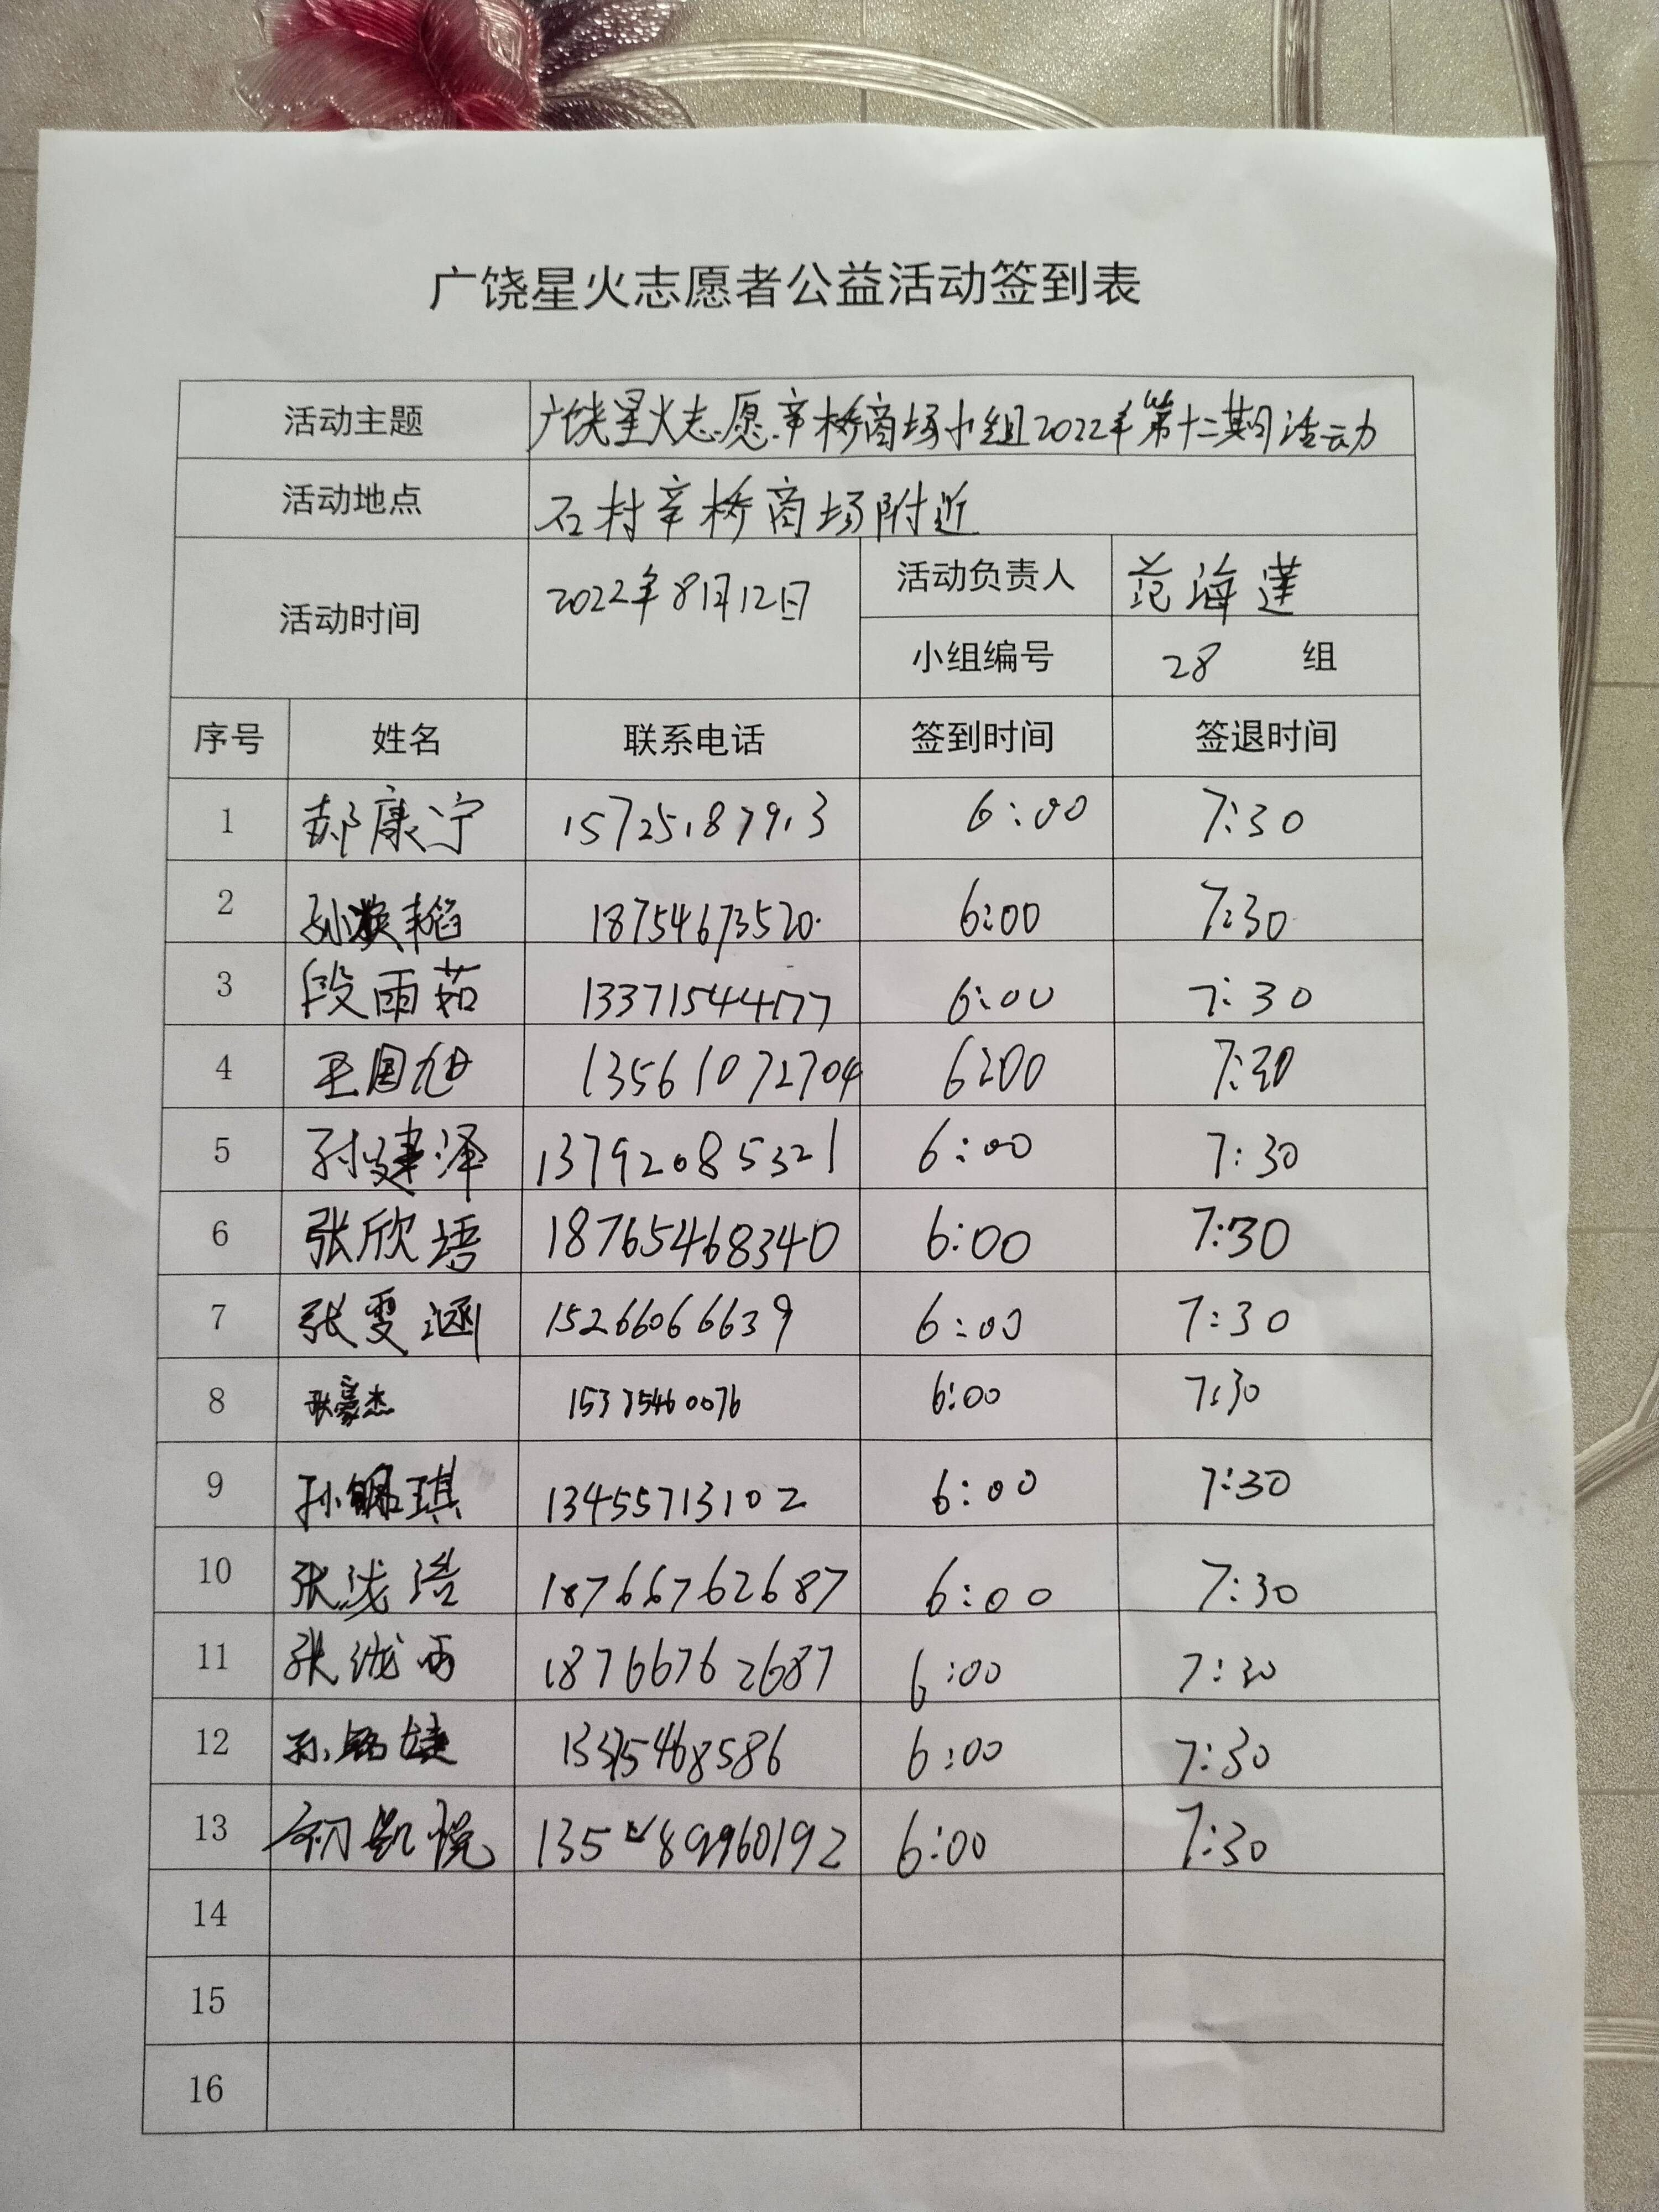 广饶星火志愿者公益活动签到表
活动主题 广饶星火志愿辛桥商场小组2022年第十二期活动
活动地点 石村辛桥商场附近
活动时间 2022年8月12日 活动负责人 范海莲
小组编号 28 组
序号 姓名 联系电话 签到时间 签退时间
1 郝康宁 15725187913 6:00 7:30
2 孙 18754673520 6:00 7:30
3 段雨茹 13371544177 6:00 7:30
4 王国旭 13561072704 6:00 7:30
5 孙建泽 13792085321 6:00 7:30
6 张欣语 18765468340 6:00 7:30
7 张雯涵 15266066639 6:00 7:30
8 耿豪杰 6:00 7:30
9 孙 琪 13455713102 6:00 7:30
10 张泷浩 18766762687 6:00 7:30
11 张 18766762687 6:00 7:30
12 孙 婕 13375468586 6:00 7:30
13 6:00 7:30
14
15
16